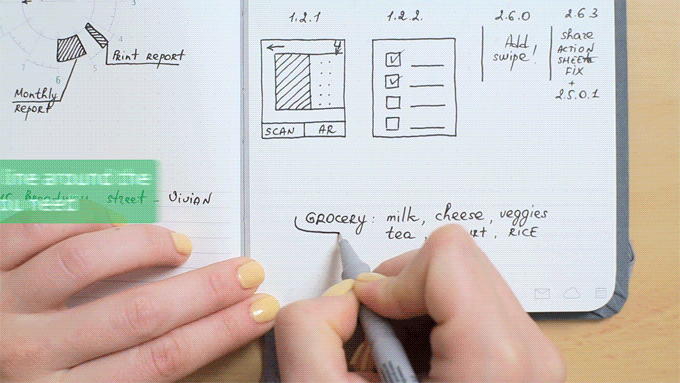 3
4
5
6
Print report
Monthly
report
1.2.1
1.2.2.
2.6.0
2.6.3
SCAN
AR
Add
swipe!
share
ACTION
SHEET
FIX
+
2.5.0.1
line around the
need
street - VIVIAN
GROCERY: milk, cheese, veggies
tea, RICE